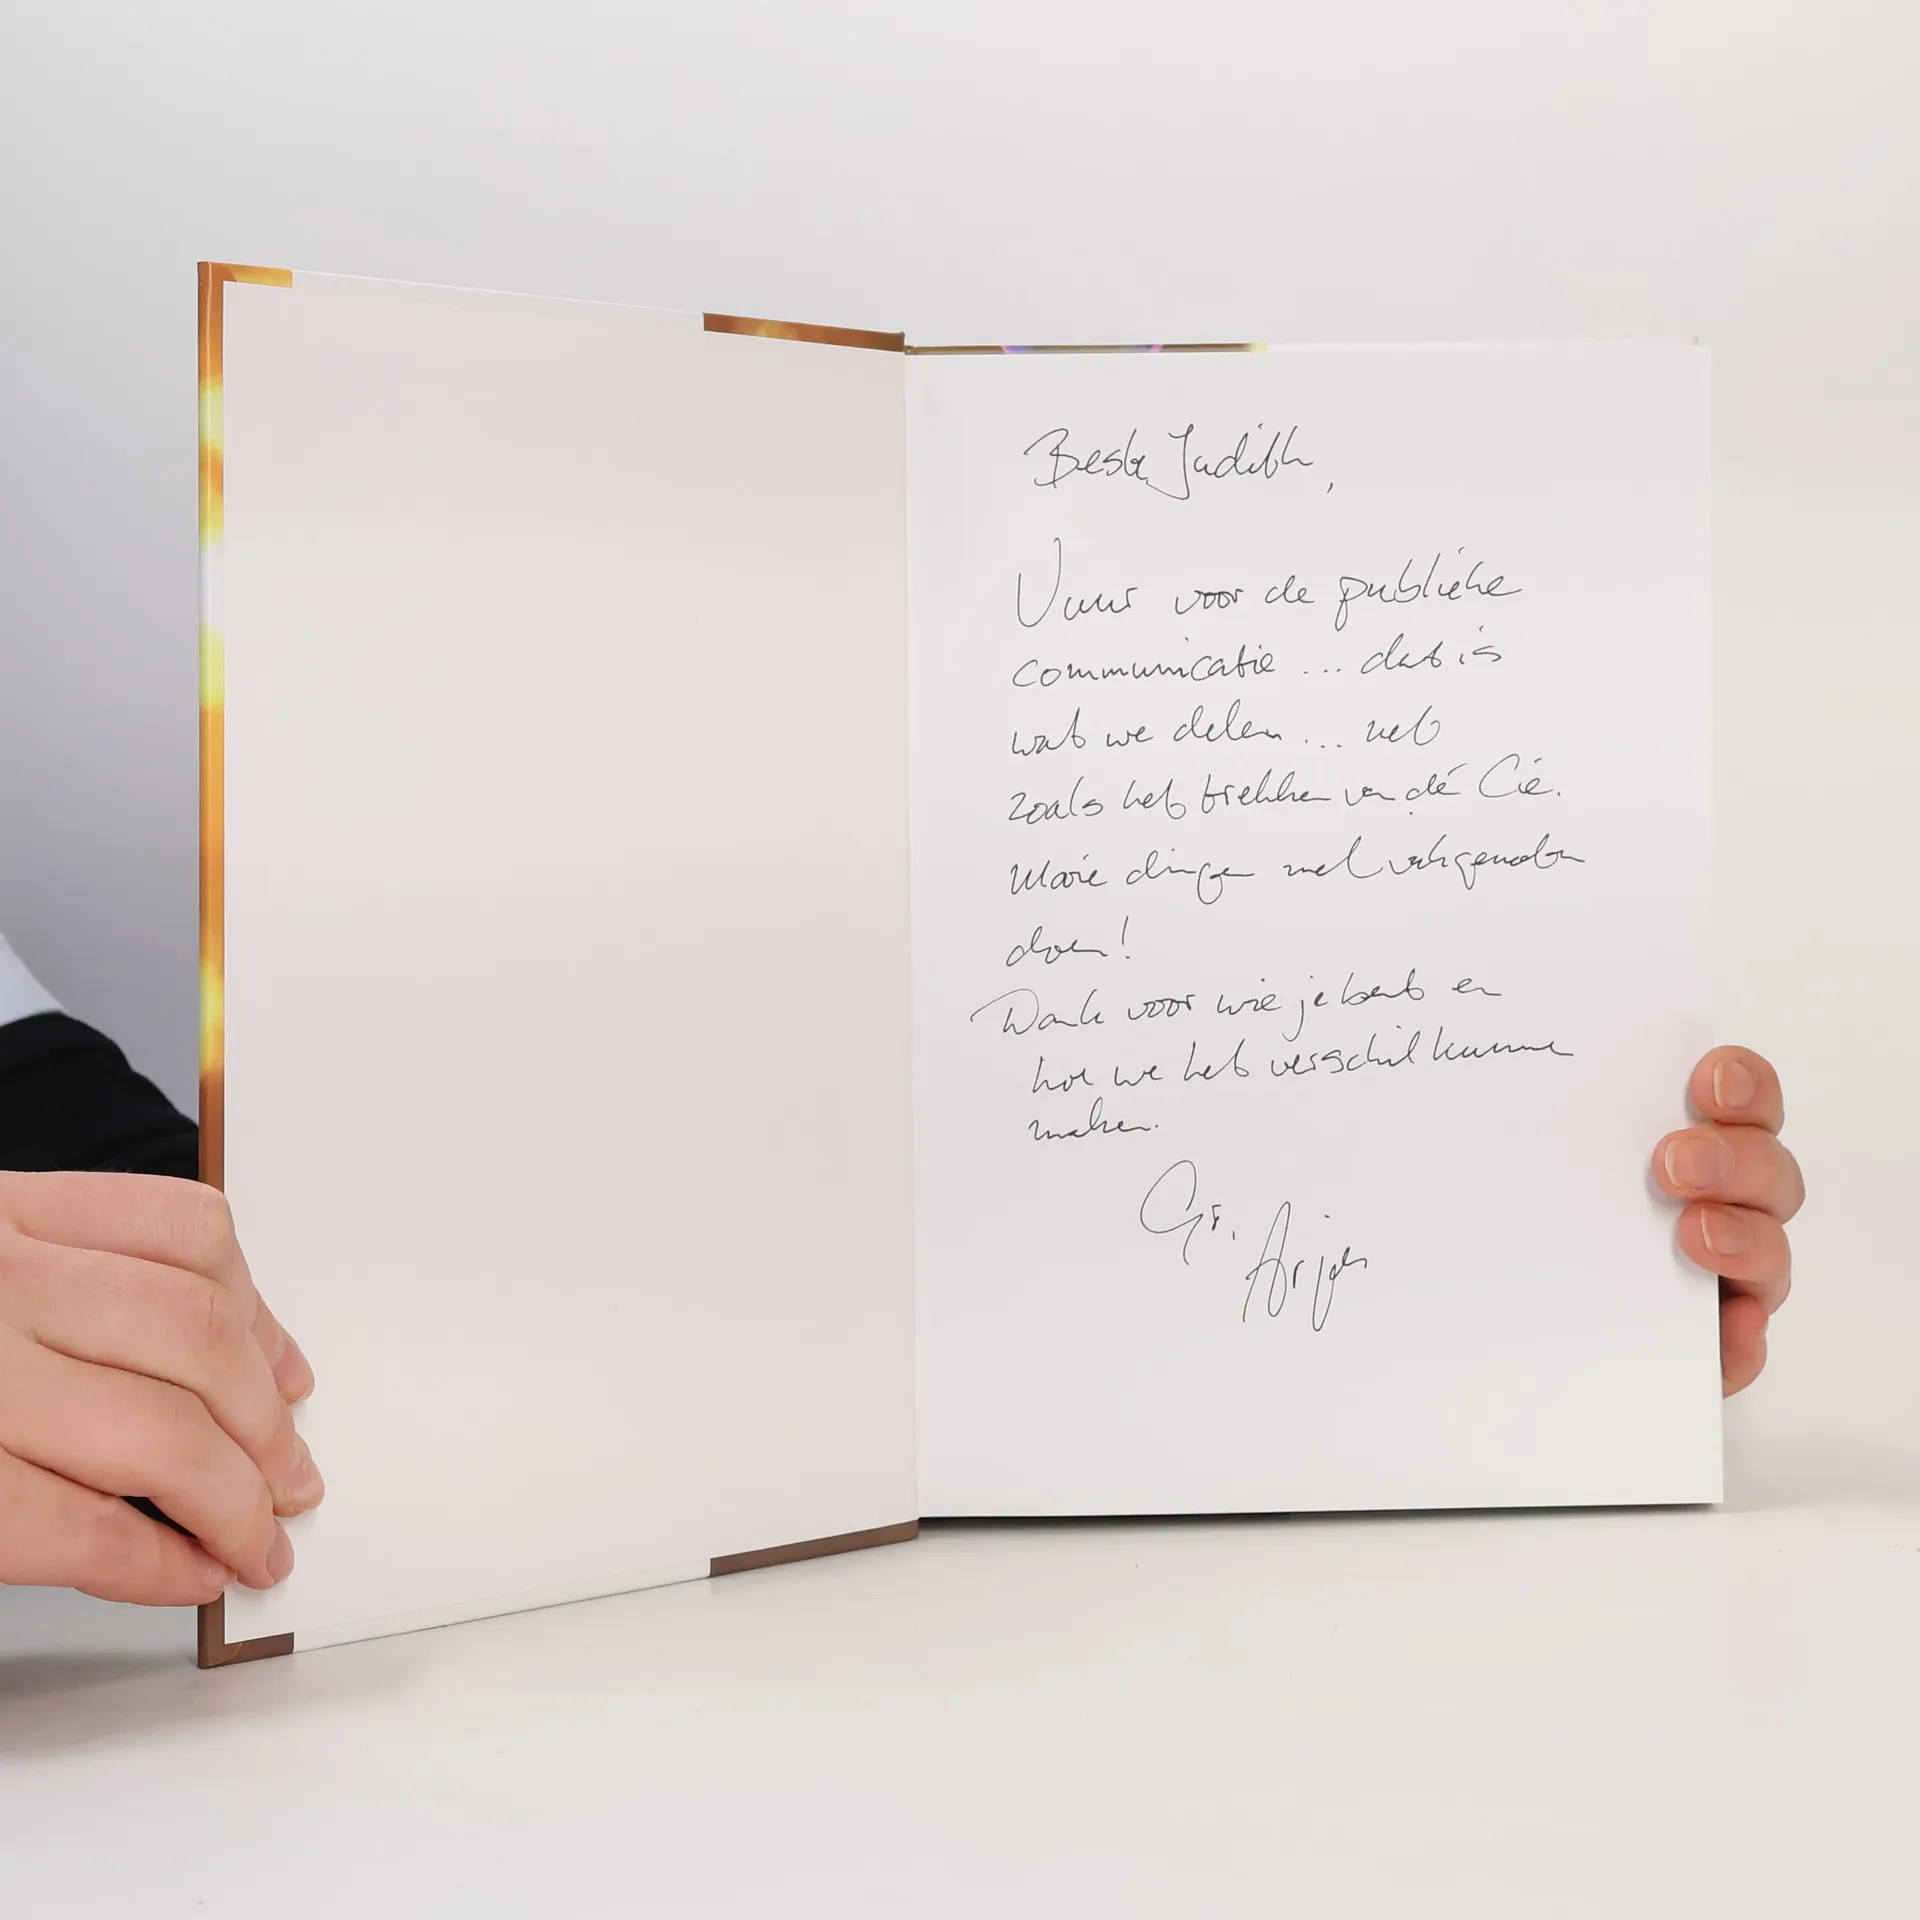 Beste Judith,
Vuur voor de publieke
communicatie ... dat is
wat we delen ... net
zoals het trekken van dé Cie.
Mooie dingen met vakgenoten
doen!
Dank voor wie je bent en
hoe we het verschil kunnen
maken.
Gr,
Arjen